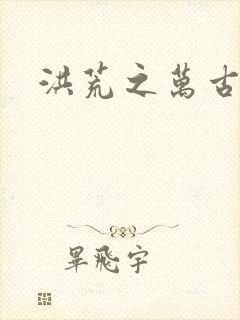 洪荒之萬古
畢飛宇